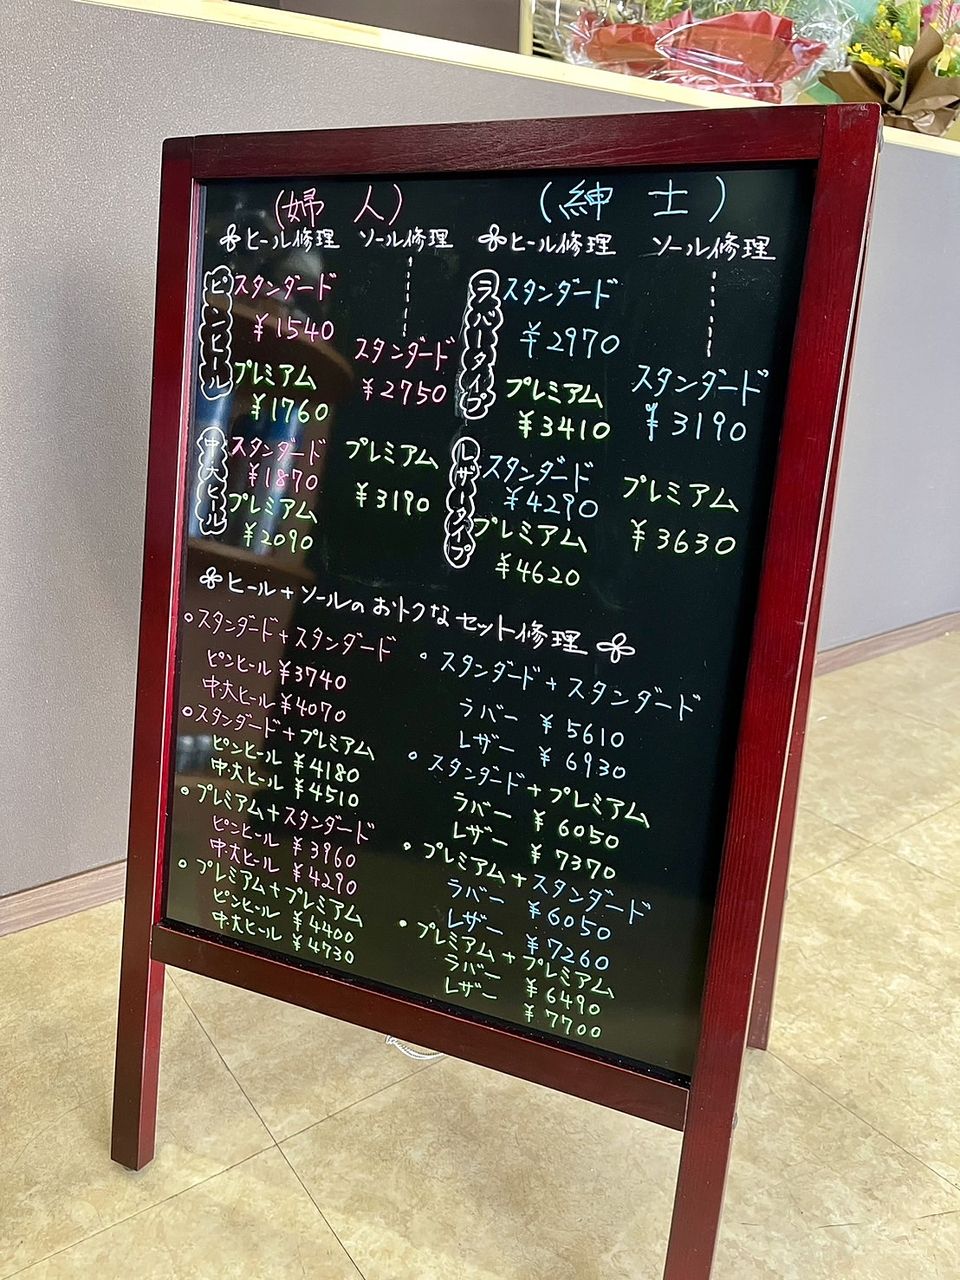 (婦人)
ヒール修理 ソール修理
ピンヒール
スタンダード
¥1540
プレミアム
¥1760
中・大ヒール
スタンダード
¥1870
プレミアム
¥2090
スタンダード
¥2750
プレミアム
¥3190
(紳士)
ヒール修理 ソール修理
ラバータイプ
スタンダード
¥2970
プレミアム
¥3410
レザータイプ
スタンダード
¥4290
プレミアム
¥4620
スタンダード
¥3190
プレミアム
¥3630
ヒール+ソールのおトクなセット修理
スタンダード+スタンダード
ピンヒール ¥3740
中・大ヒール ¥4070
スタンダード+プレミアム
ピンヒール ¥4180
中・大ヒール ¥4510
プレミアム+スタンダード
ピンヒール ¥3960
中・大ヒール ¥4290
プレミアム+プレミアム
ピンヒール ¥4400
中・大ヒール ¥4730
スタンダード+スタンダード
ラバー ¥5610
レザー ¥6930
スタンダード+プレミアム
ラバー ¥6050
レザー ¥7370
プレミアム+スタンダード
ラバー ¥6050
レザー ¥7260
プレミアム+プレミアム
ラバー ¥6490
レザー ¥7700